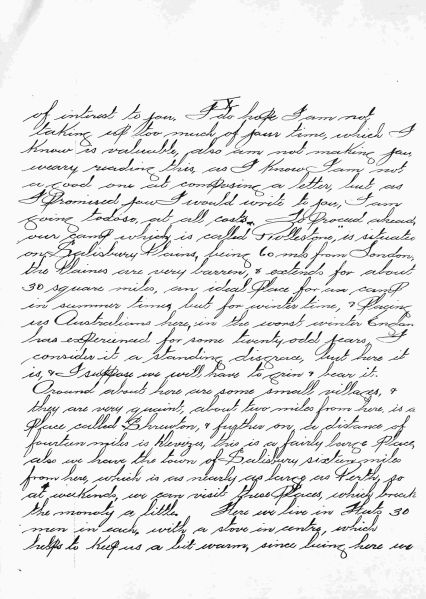 IV
of interest to you. I do hope I am not
taking up too much of your time, which I
know is valuable, also am not making you
weary reading this, as I know I am not
a good one at composing a letter, but as
I promised you I would write to you, I am
going todoso, at all costs. To Proceed ahead,
our camp which is called "Rollestone" is situated
on Salisbury Plains, being 60 mls from London,
the Plaines are very barren, & extends for about
30 square miles, an ideal Place for an camp
in summer time, but for winter time, & Placing
us Australians here, in the worst winter England
has experienced for some twenty odd years, I
consider it a standing disgrace, but here it
is, & I suppose we will have to grin & bear it.
Around about here are some small villages, &
they are very quaint, about two miles from here, is a
Place called Shrewton, & further on, a distance of
fourteen miles is Devizes, this is a fairly large Place,
also we have the town of Salisbury sixteen miles
from here, which is as nearly as large as Perth, so
at weekends, we can visit these Places, which break
the monoty a little. Here we live in Huts 30
men in each, with a stove in centre, which
helps to keep us a bit warm, since being here we